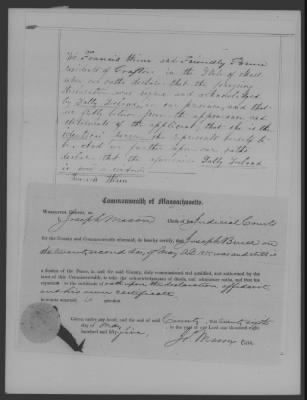 We Francis Winn and Friendly
residents of Grafton in the State of Mass
upon our oaths declare that the foregoing
declaration was signed and acknowledged
by Sally Leland in our presence, and that
we fully believe from the appearance and
statements of the applicant, that she is the
identical person she represents herself to
be. And we further upon our oaths
declare that the aforesaid Sally Leland
is now a widow
Francis Winn
Commonwealth of Massachusetts.
WORCESTER COUNTY, ss.
I Joseph Mason Clerk of the Judicial Courts
for the County and Commonwealth aforesaid, do hereby certify, that Joseph Bruce on
the twenty second day of May A.D. 1855 was and still is
a Justice of the Peace, in and for said County, duly commissioned and qualified, and authorized by the
laws of this Commonwealth, to take the acknowledgment of deeds, and administer oaths, and that his
signature to the certificate of oath upon the declaration affidavit
and his own certificate
hereunto annexed is genuine.
Given under my hand, and the seal of said County, this twenty sixth
day of May in the year of our Lord one thousand eight
hundred and fifty five.
Jos. Mason Clerk.